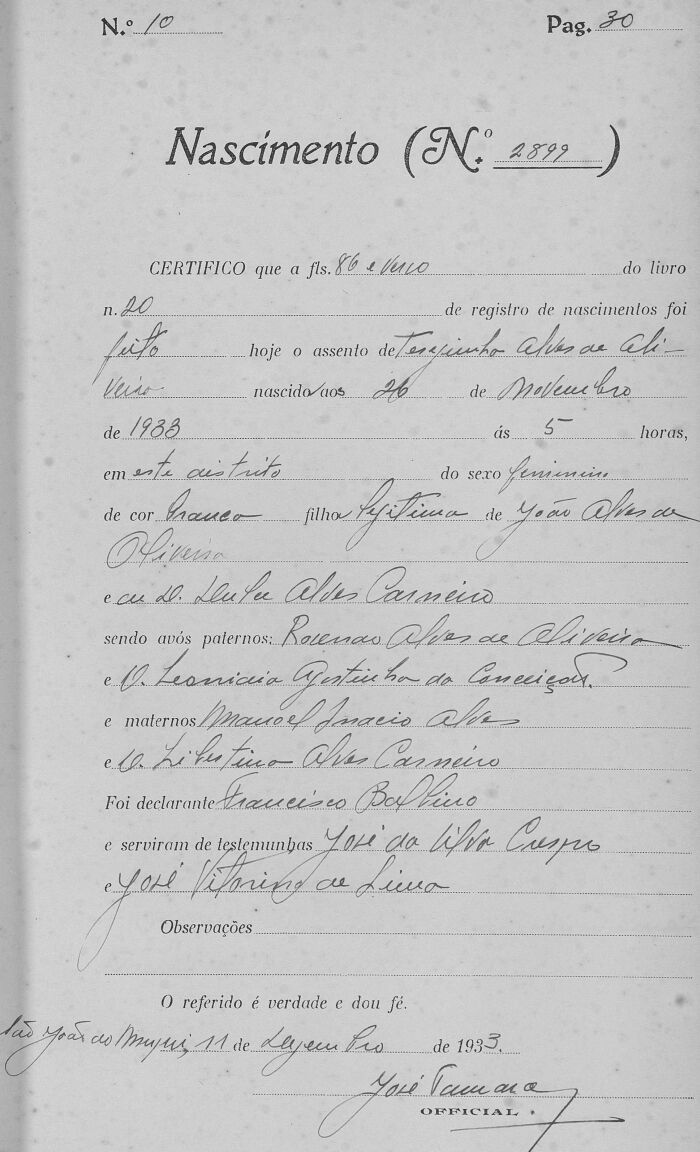 N.º 10 Pag. 30
Nascimento (N.º 2899)
CERTIFICO que a fls. 86 e verso do livro
n. 20 de registro de nascimentos foi
feito hoje o assento de Teresinha Alves de Oli-
veira nascido aos 26 de Novembro
de 1933 ás 5 horas,
em este distrito do sexo feminino
de cor branca filha legitima de João Alves de
Oliveira
e de D. Alves Carneiro
sendo avós paternos: Rosendo Alves de Oliveira
e D. Leonidia Agostinha da Conceição.
e maternos Manoel Inacio Alves
e D. Libertina Alves Carneiro
Foi declarante Francisco Balbino
e serviram de testemunhas José da Silva Crespo
e José Vitorino de Lima
Observações
O referido é verdade e dou fé.
São João do Muqui, 11 de Dezembro de 1933.
José
OFFICIAL